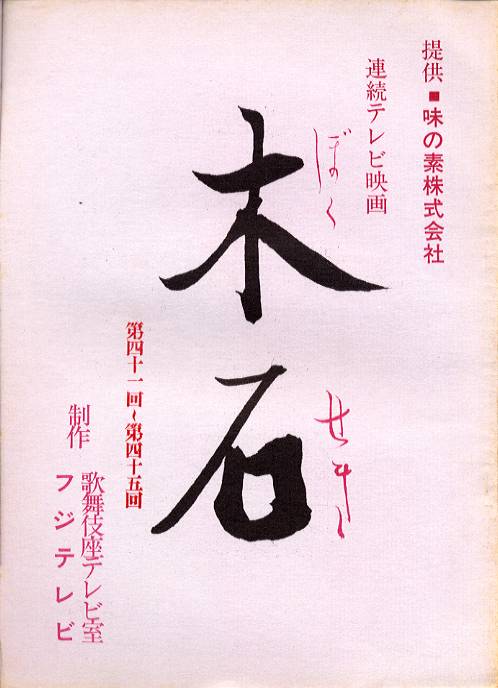 提供■味の素株式会社
連続テレビ映画
ぼく
木石
せき
第四十一回〜第四十五回
制作
歌舞伎座テレビ室
フジテレビ